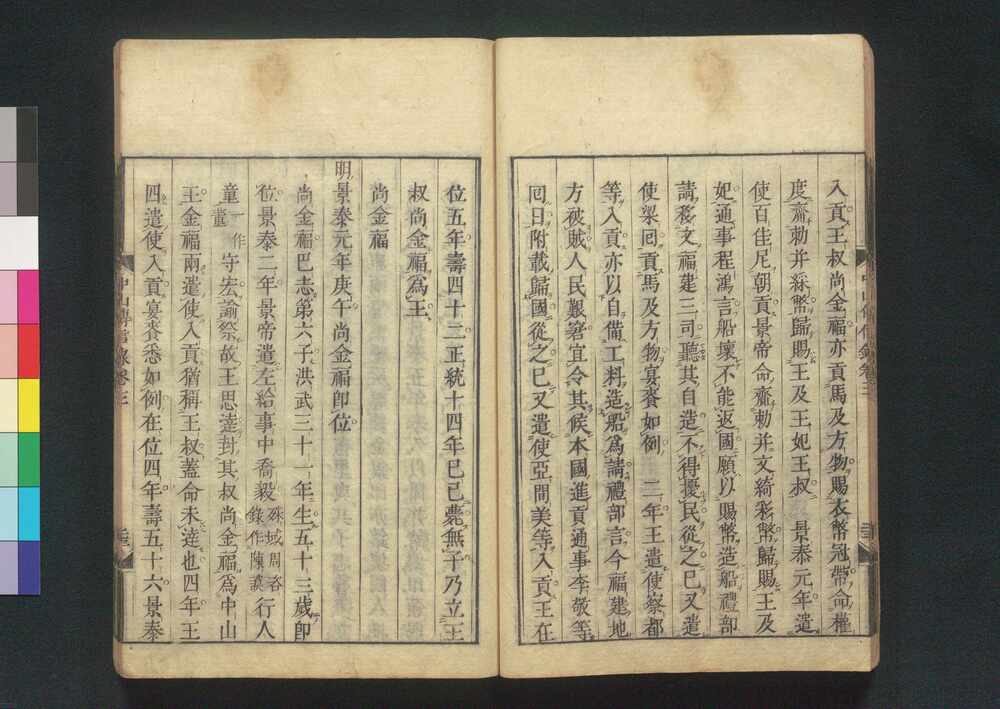 入貢王叔尚金福亦貢馬及方物賜衣幣冠帶命權
度齎勅并綵幣歸賜王及王妃王叔　景泰元年遣
使百佳尼朝貢景帝命齎勅并文綺彩幣歸賜王及
妃通事程鴻言船壞不能返國願以賜幣造船禮部
請移文福建三司聽其自造不得擾民從之巳又遣
使梁回貢馬及方物宴賚如例　二年王遣使察都
等入貢亦以自備工料造船爲請禮部言今福建地
方被賊人民艱窘宜令其候本國進貢通事李敬等
囘日附載歸國從之巳又遣使亞間美等入貢王在
位五年壽四十二正統十四年巳巳薨無子乃立王
叔尚金福爲王
尚金福
明景泰元年庚午尚金福卽位
尚金福巴志第六子洪武三十一年生五十三歲卽
位景泰二年景帝遣左給事中喬毅殊域周咨錄作陳謨行人
童一作董守宏諭祭故王思達封其叔尚金福爲中山
王金福兩遣使入貢猶稱王叔蓋命未達也四年王
四遣使入貢宴賚悉如例在位四年壽五十六景泰
中山傳信錄卷三